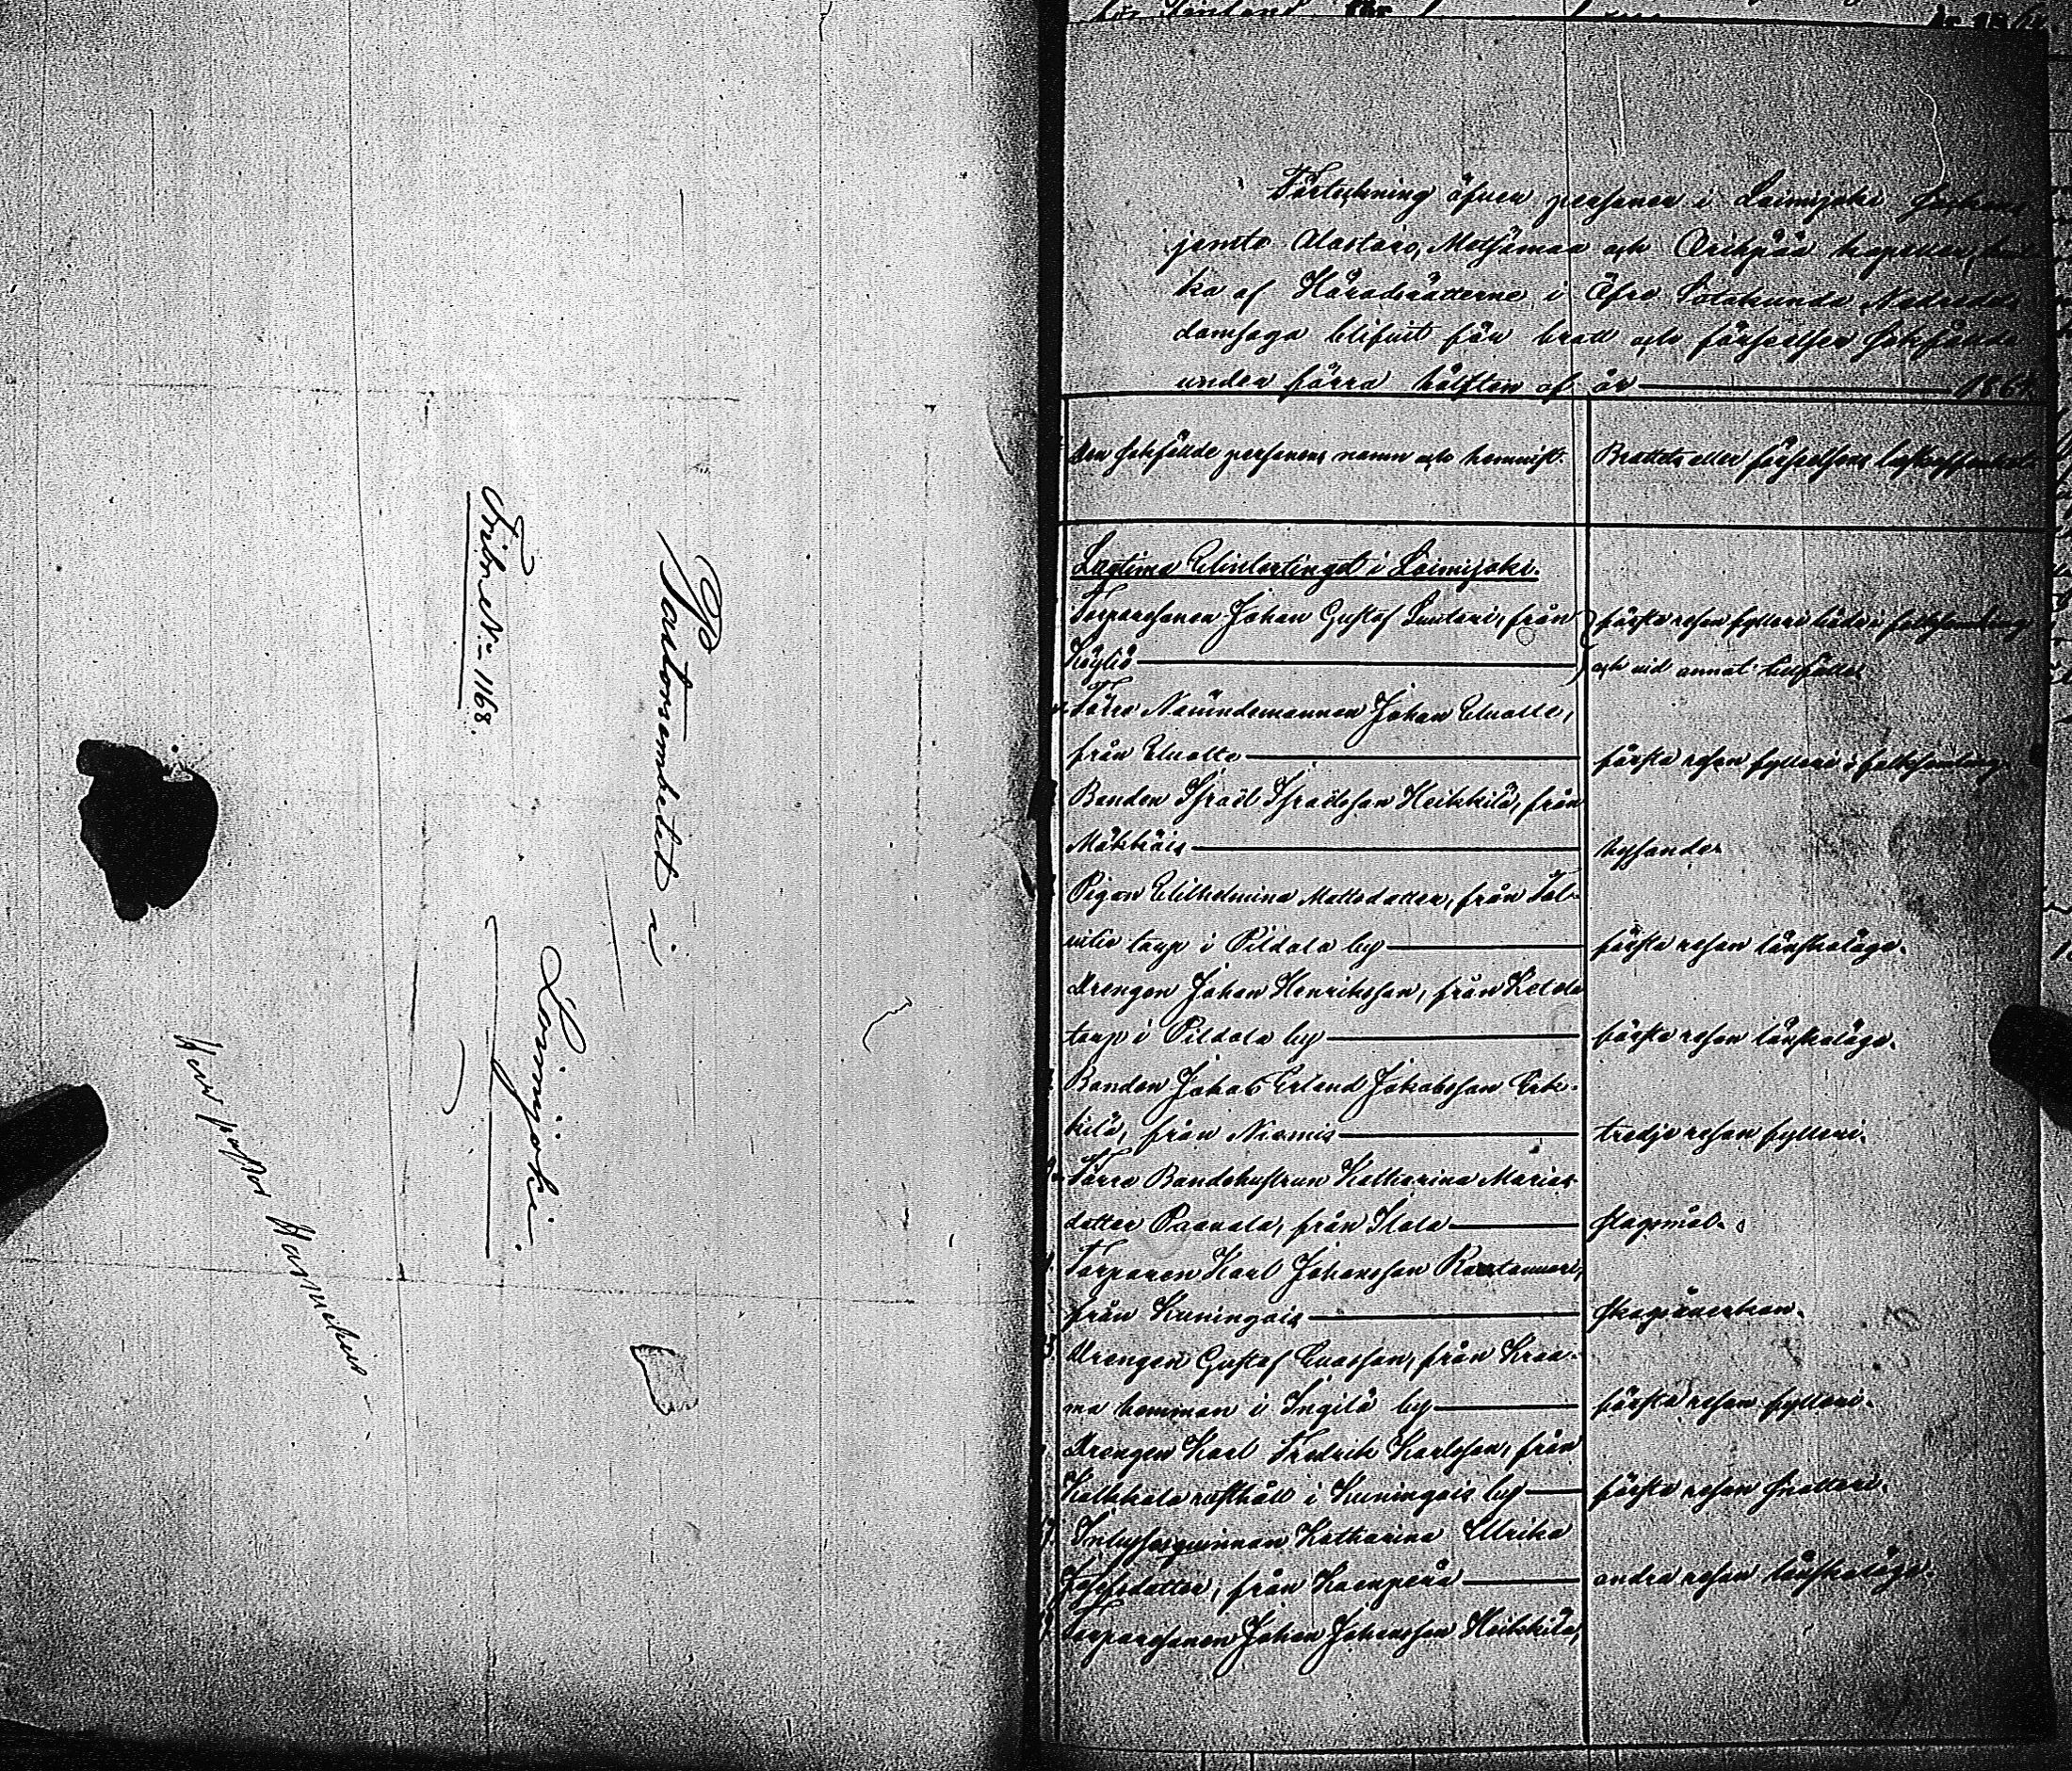 Pastorsembetet i
Loimijoki.
Tribre No 1168.
Förteckning öfver personer i Loimijoki sockne
jemte Alastaro, Metsämaa och Oripää kapeller, hvil-
ka af Häradsrätterne i Öfre Satakunda Nedredels
domsaga blifvit för brott och förseelser sakfällde
under förra hälften af år — 1864.
Den sakfällde personens namn och hemvist.
Brottets eller förseelsens beskaffenhet.
Lagtima Vintertinget i Loimijoki.
Torparesonen Johan Gustaf Suutari, från
Köyliö — första resan fylleri både i folksamling
och vid annat tillfälle
Förre Nämndemannen Johan Uvatte,
från Uvatto — första resan fylleri i folksamling.
Bonden Israël Israëlsson Heikkilä, från
Mäkkäis — kysande.
Pigan Wilhelmina Mattsdotter, från
torp i Pildola by — första resan lönskaläge.
Drengen Johan Henriksson, från
torp i Pildola by — första resan lönskaläge.
Bonden Johan Erland Jakobsson Erk-
kilä, från Niemis — tredje resan fylleri.
Förra Bondehustrun Katharina Marias-
dotter Paavola, från Ilola — slagsmål.
Torparen Karl Johansson Rantanuori,
från Kuningois — skogsåverkan.
Drengen Gustaf Evasson, från Kraa-
ma hemman i Ingilä by — första resan fylleri.
Drengen Karl Fredrik Karlsson, från
Kalkkala rusthåll i Kuningois by — första resan snatteri.
Inhysesqvinnan Katharina Ulrika
Josefsdotter, från Kaenperä — andra resan lönskaläge.
Torparesonen Johan Johansson Heikkilä,